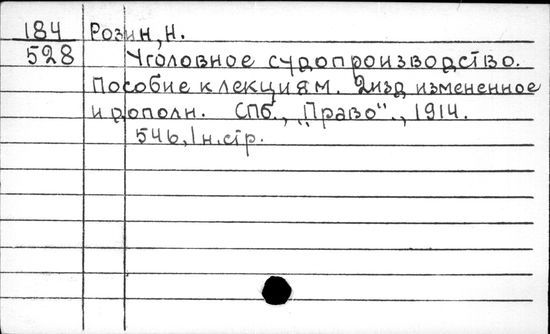 184 Розин, Н.
528 Уголовное судопроизводство.
Пособие к лекциям. 2изд измененное
и дополн. СПб., „Право"., 1914.
546, 1 н.стр.